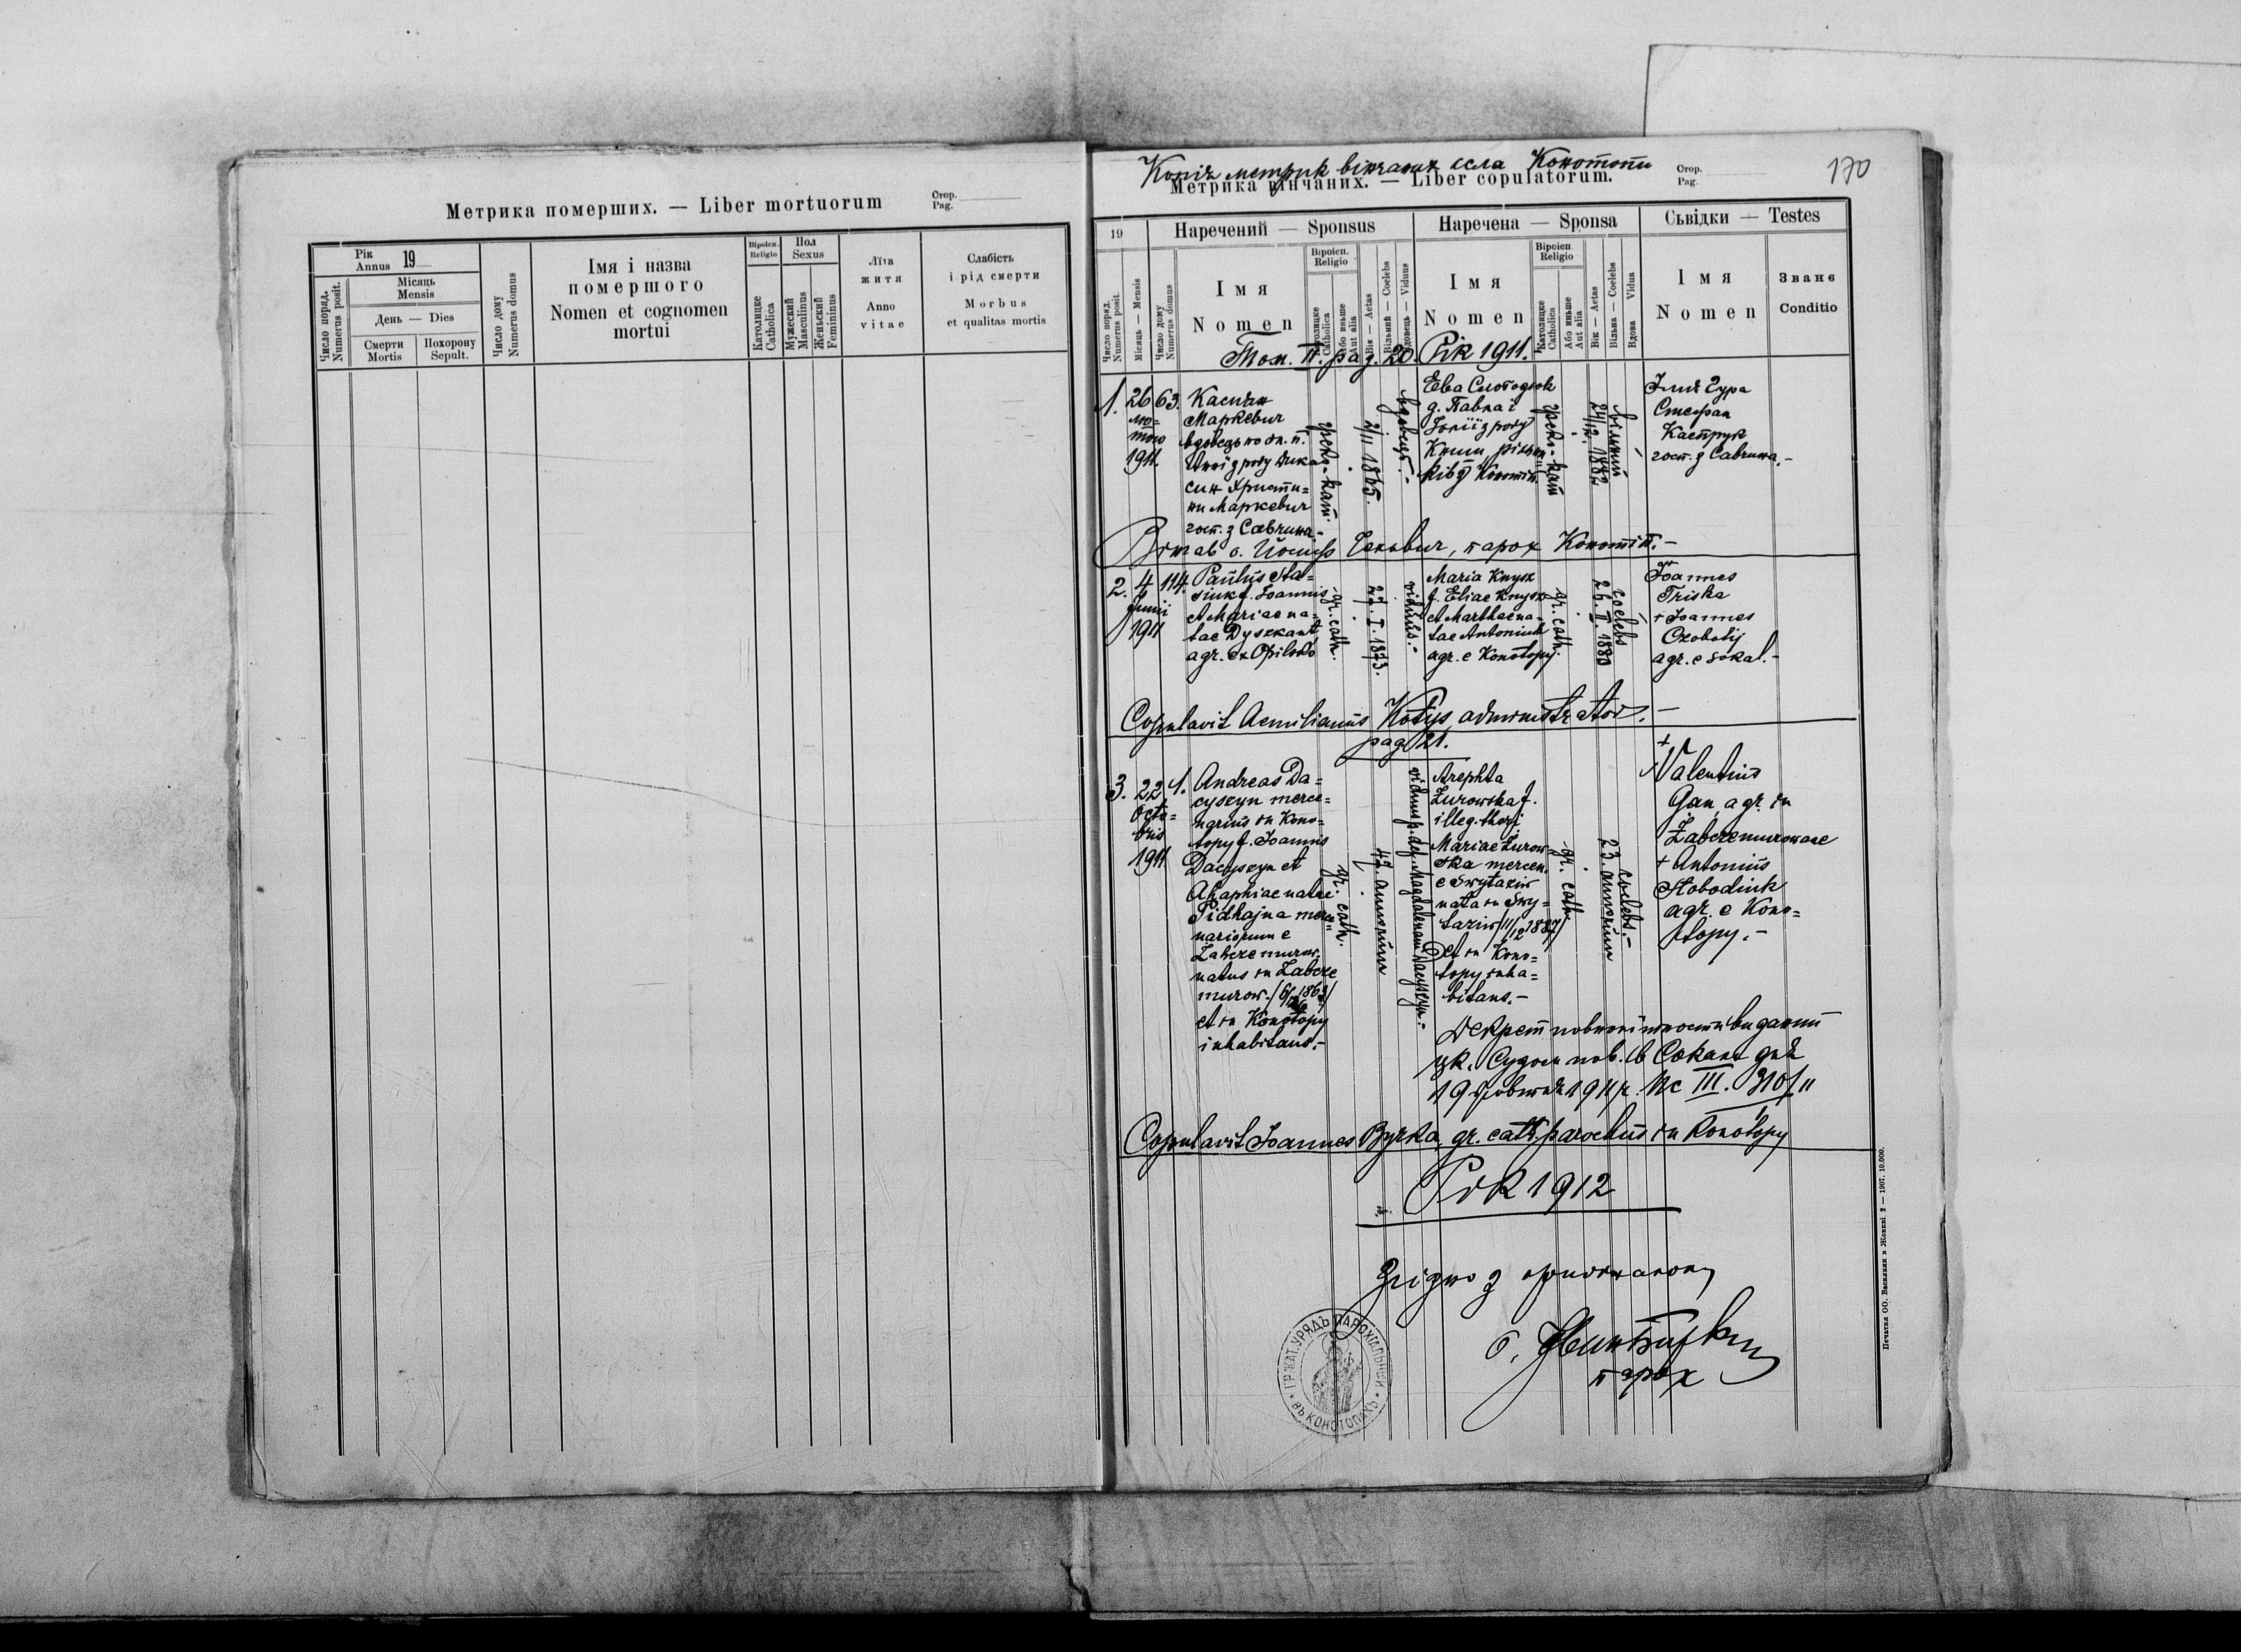 Метрика померших. — Liber mortuorum
Стор.
Pag.
Рік
Annus 19
Число поряд.
Numerus posit.
Місяць
Mensis
День — Dies
Смерти
Mortis
Похорону
Sepult.
Число дому
Numerus domus
Імя і назва
помершого
Nomen et cognomen
mortui
Віроісп.
Religio
Католицке
Catholica
Пол
Sexus
Мужеский
Masculinus
Женьский
Femininus
Літа
житя
Anno
vitae
Слабість
і рід смерти
Morbus
et qualitas mortis
Копія метрик вінчаних села Конотопи
Метрика вінчаних. — Liber copulatorum.
Стор.
Pag.
170
19
Число поряд.
Numerus posit.
Місяць — Mensis
Число дому
Numerus domus
Наречений — Sponsus
Імя
Nomen
Віроісп.
Religio
Католицке
Catholica
Або иньше
Aut alia
Вік — Aetas
Вільний — Coelebs
Вдовець — Viduus
Наречена — Sponsa
Імя
Nomen
Віроісп
Religio
Католицке
Catholica
Або иньше
Aut alia
Вік — Aetas
Вільна — Coelebs
Вдова Vidua
Сьвідки — Testes
Імя
Nomen
Званє
Conditio
Том. II. pag. 20. Рік 1911.
1. 26 лю=
того
1911.
63.
Касіян
Маркевич
вдовець по
син Христи=
ни Маркевич
гост. з Савчина.-
греко-кат.
2/11 1865.
вдовець.-
Ева Слободюк
д. Павла і
з роду
греко-кат
24/12. 1882
Гура
Стефан
Каструк
гост. з Савчина.-
Вінчав о. Йосиф парох Конотіп.-
2. 4
Junii
1911
114.
Paulus Sta=
siuk f. Joannis
et Mariae na=
tae Dyszkant
agr. ex Opilsko
gr. cath.
27. I. 1873.
viduus.-
Maria Knysz
f. Eliae Knysz
et Marthae na=
tae Antoniuk
agr. e Konotopy.
gr. cath.
26. II. 1880
coelebs
Joannes
Triska
+ Joannes
Ozobotij
agr. e Sokal.-
Copulavit Aemilianus Kotys, administrator.-
pag 21.
3. 22
Octo=
bris
1911
1.
Andreas Da=
cyszyn merce=
narius in Kono=
topy f. Joannis
Dacyszyn et
Ahaphiae natae
Pidhajna merce=
nariorum e
Zabcze murow.
natus in Zabcze
murow. 1863
et in Konotopy
inhabitans.-
gr. cath.
47. annorum
viduus p. def. Magdalenam Dacyszyn.-
Arephta
Żurowska f.
illeg. thori
Mariae Żurow=
ska mercen.
e Swytaziw
nata in Swy=
taziw /11/12 1887/
et in Kono=
topy inha=
bitans.-
gr. cath.
23. annorum
coelebs.-
+
Valentius
Gan, agr. in
Zabcze murowane
+ Antonius
Slobodiuk
agr. e Kono=
topy.-
Декрет повнолітности виданий
цк. Судом пов. в Сокали дня
19 жовтня 1911 р. Nc III. 310/11
Copulavit Joannes Byrka, gr. cath. parochus in Konotopy
Рік 1912
Згідно з оригіналом
о.
парох
ГР. КАТ. УРЯДЪ ПАРОХІАЛЬНЫЙ
ВЪ КОНОТОПАХЪ
Печатня ОО. Василиян в Жовкві. 2 — 1907. 10.000.